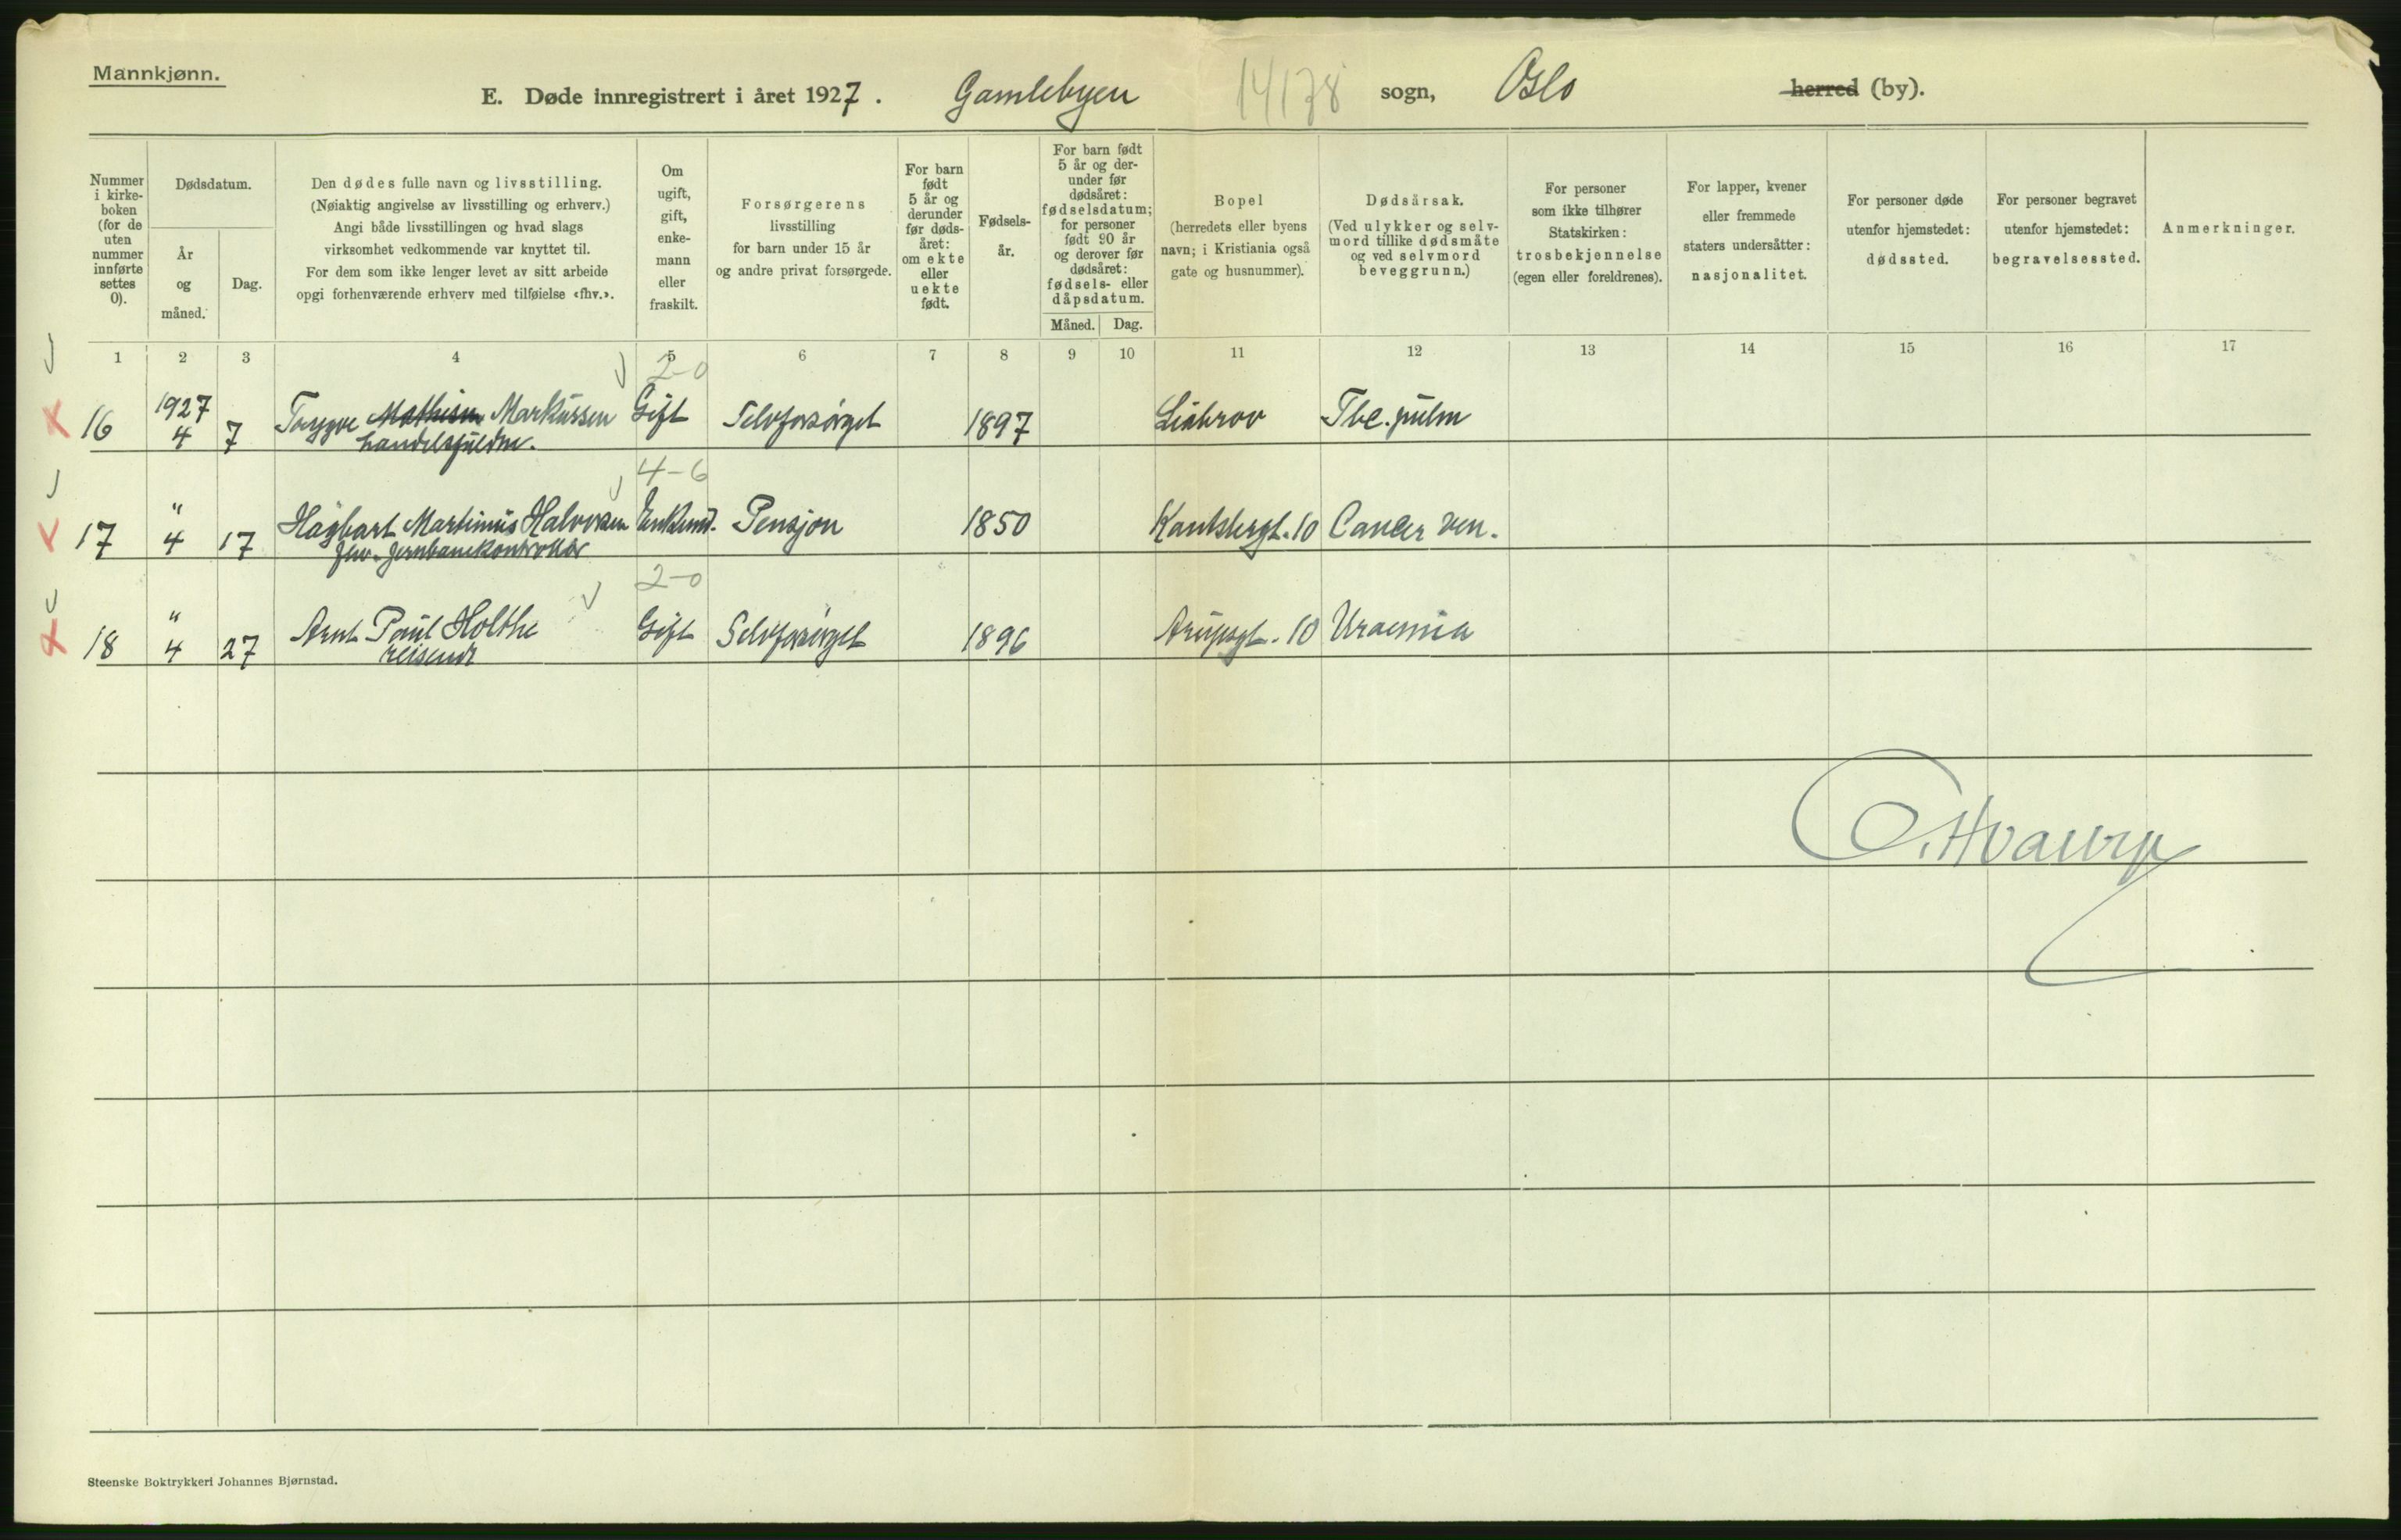 Mannkjønn.
E. Døde innregistrert i året 1927. Gamlebyen 14/178 sogn, Oslo herred (by).
Nummer i kirke-boken (for de uten nummer innførte settes 0).
Dødsdatum.
År og måned.
Dag.
Den dødes fulle navn og livsstilling.
(Nøiaktig angivelse av livsstilling og erhverv.)
Angi både livsstillingen og hvad slags
virksomhet vedkommende var knyttet til.
For dem som ikke lenger levet av sitt arbeide
opgi forhenværende erhverv med tilføielse «fhv.».
Om ugift, gift, enke-mann eller fraskilt.
Forsørgerens
livsstilling
for barn under 15 år
og andre privat forsørgede.
For barn født 5 år og derunder før døds-året: om ekte eller uekte født.
Fødsels-år.
For barn født 5 år og der-under før dødsåret: fødselsdatum; for personer født 90 år og derover før dødsåret: fødsels- eller dåpsdatum.
Måned. Dag.
Bopel
(herredets eller byens
navn; i Kristiania også
gate og husnummer).
Dødsårsak.
(Ved ulykker og selv-
mord tillike dødsmåte
og ved selvmord
beveggrunn.)
For personer
som ikke tilhører
Statskirken:
trosbekjennelse
(egen eller foreldrenes).
For lapper, kvener
eller fremmede
staters undersåtter:
nasjonalitet.
For personer døde
utenfor hjemstedet:
dødssted.
For personer begravet
utenfor hjemstedet:
begravelsessted.
Anmerkninger.
1 2 3 4 5 6 7 8 9 10 11 12 13 14 15 16 17
2-0
16 1927 4 7 Trygve Mathisen Markussen Gift Selvforsørget 1897 Liabrov Tbc. pulm
4-6
17 " 4 17 Hagbart Martinius Halvorsen Enkem. Pensjon 1850 Kanslergt. 10 Cancer ven.
fhv. jernbanekontrollør
2-0
18 " 4 27 Arnt Paul Holthe Gift Selvforsørget 1896 Arupsgt. 10 Uraemia
reisende
Steenske Boktrykkeri Johannes Bjørnstad.